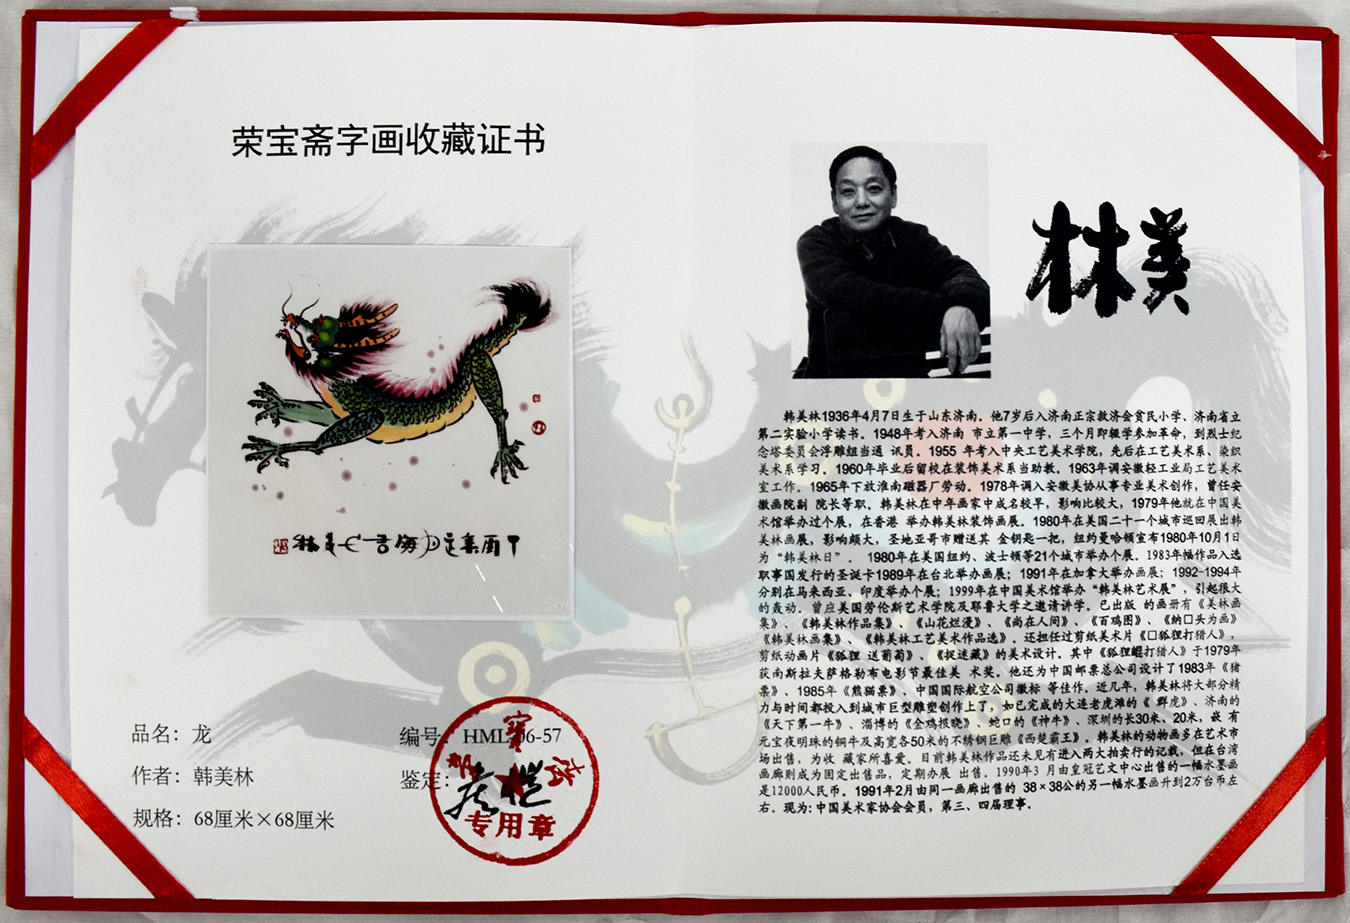 荣宝斋字画收藏证书
品名：龙
作者：韩美林
规格：68厘米×68厘米
编号：HML-06-57
鉴定：
专用章
美林
韩美林1936年4月7日生于山东济南。他7岁后入济南正宗救济会贫民小学、济南省立
第二实验小学读书。1948年考入济南 市立第一中学，三个月即辍学参加革命，到烈士纪
念塔委员会浮雕组当通 讯员。1955 年考入中央工艺美术学院，先后在工艺美术系、染织
美术系学习。1960年毕业后留校在装饰美术系当助教。1963年调安徽轻工业局工艺美术
室工作。1965年下放淮南磁器厂劳动。1978年调入安徽美协从事专业美术创作，曾任安
徽画院副 院长等职。韩美林在中年画家中成名较早，影响比较大，1979年他就在中国美
术馆举办过个展，在香港 举办韩美林装饰画展。1980年在美国二十一个城市巡回展出韩
美林画展，影响颇大，圣地亚哥市赠送其 金钥匙一把，纽约曼哈顿宣布1980年10月1日
为“韩美林日”。 1980年在美国纽约、波士顿等21个城市举办个展。1983年幅作品入选
职事国发行的圣诞卡1989年在台北举办画展；1991年在加拿大举办画展；1992-1994年
分别在马来西亚、印度举办个展；1999年在中国美术馆举办“韩美林艺术展”，引起很大
的轰动。曾应美国劳伦斯艺术学院及耶鲁大学之邀请讲学。已出版 的画册有《美林画
集》、《韩美林作品集》、《山花烂漫》、《尚在人间》、《百鸡图》、《纳□头为画》
《韩美林画集》、《韩美林工艺美术作品选》。还担任过剪纸美术片《□狐狸打猎人》，
剪纸动画片《狐狸 送葡萄》、《捉迷藏》的美术设计。其中《狐狸 打猎人》于1979年
获南斯拉夫萨格勒布电影节最佳美 术奖。他还为中国邮票总公司设计了1983年《猪
票》、1985年《熊猫票》、中国国际航空公司徽标 等佳作。近几年，韩美林将大部分精
力与时间都投入到城市巨型雕塑创作上了，如已完成的大连老虎滩的《 群虎》、济南的
《天下第一牛》、淄博的《金鸡报晓》、蛇口的《神牛》、深圳的长30米、20米，嵌 有
元宝夜明珠的铜牛及高宽各50米的不锈钢巨雕《西楚霸王》。韩美林的动物画多在艺术市
场出售，为收 藏家所喜爱。目前韩美林作品还未见有进入两大拍卖行的记载，但在台湾
画廊则成为固定出售品，定期办展 出售。1990年3 月由皇冠艺文中心出售的一幅水墨画
是12000人民币。1991年2月由同一画廊出售的 38×38公的另一幅水墨画升到2万台币左
右。现为：中国美术家协会会员，第三、四届理事。